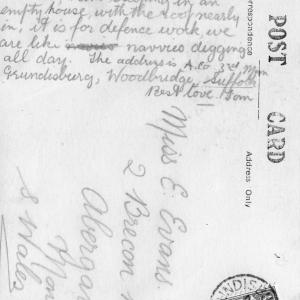 empty house, with the roof nearly
in, it is for defence work, we
are like navvies digging
all day. The address is A.Co. 3rd Mon
Grundisburg, Woodbridge, Suffolk
Best love Tom
POST CARD
Correspondence
Address Only
Miss E. Evans.
2 Brecon
Abergav
Mon
S Wales